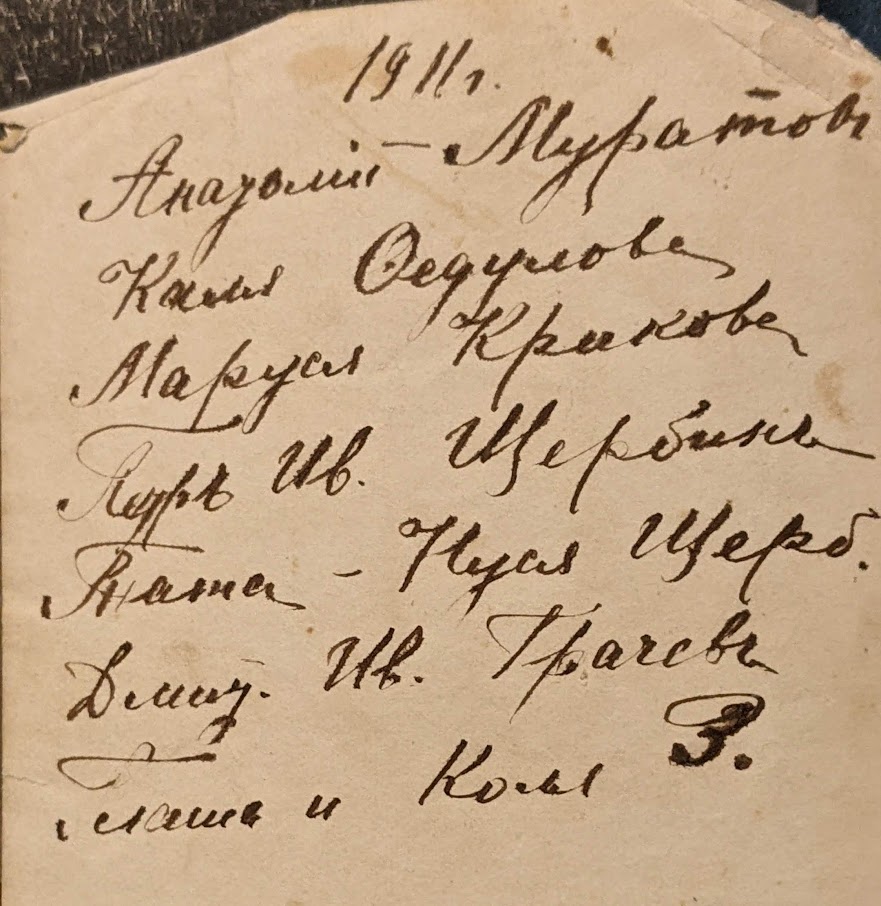 1911 г.
Анатолій - Муратовъ
Капля Ѳедулова
Маруся Крюкова
Ив. Щербинъ
Тата - Нуся Щерб.
Дмит. Ив. Грачевъ
Глаша и Коля З.